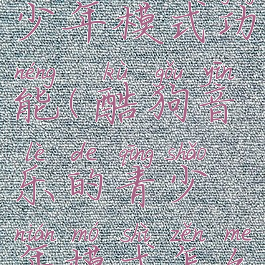 少年模式功
néng kù gǒu yīn
能(酷狗音
lè de qīng shǎo
乐的青少
nián mó shì zěn me
年模式怎么